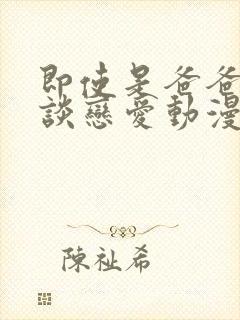 即使是爸爸
談戀愛動漫
陳祉希